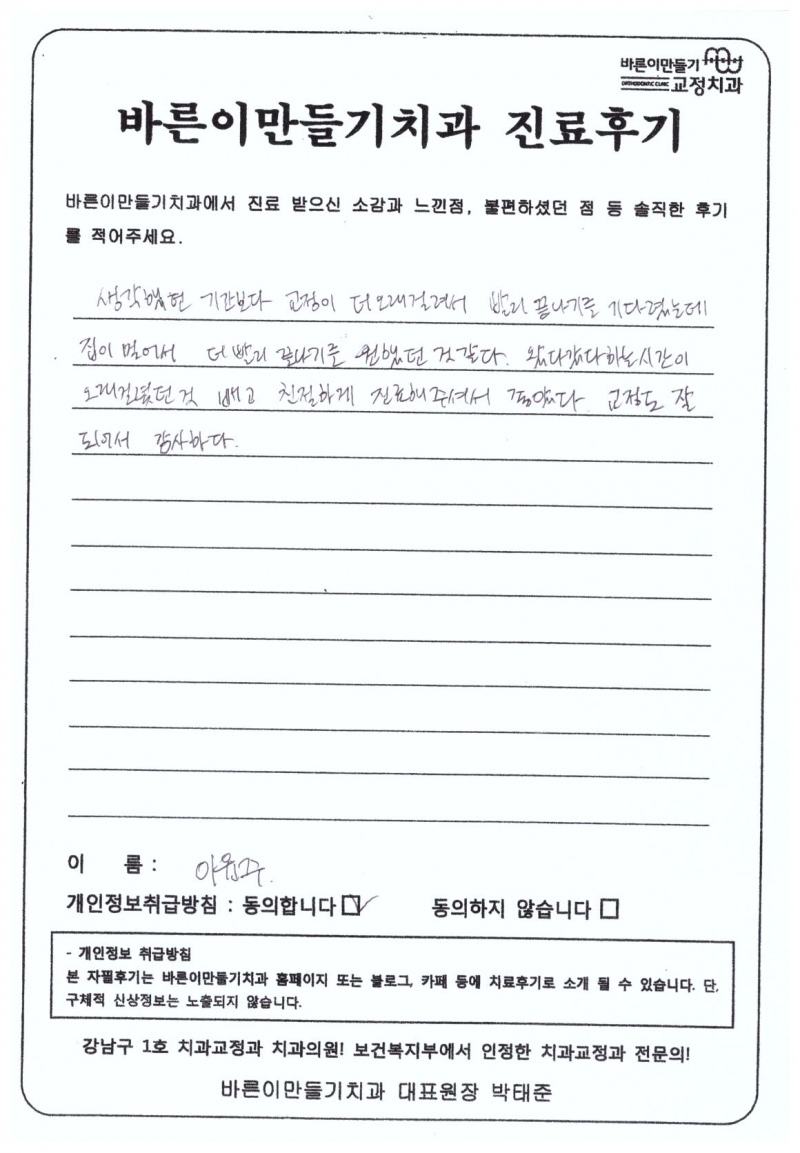 바른이만들기
ORTHODONTIC CLINIC 교정치과
바른이만들기치과 진료후기
바른이만들기치과에서 진료 받으신 소감과 느낀점, 불편하셨던 점 등 솔직한 후기
를 적어주세요.
생각했던 기간보다 교정이 더 오래걸려서 빨리 끝나기를 기다렸는데
집이 멀어서 더 빨리 끝나기를 원했던 것 같다. 왔다갔다하는시간이
오래걸렸던 것 빼고 친절하게 진료해주셔서 좋았다. 교정도 잘
되어서 감사하다.
이 름 :
개인정보취급방침 : 동의합니다 동의하지 않습니다
- 개인정보 취급방침
본 자필후기는 바른이만들기치과 홈페이지 또는 블로그, 카페 등에 치료후기로 소개 될 수 있습니다. 단,
구체적 신상정보는 노출되지 않습니다.
강남구 1호 치과교정과 치과의원! 보건복지부에서 인정한 치과교정과 전문의!
바른이만들기치과 대표원장 박태준